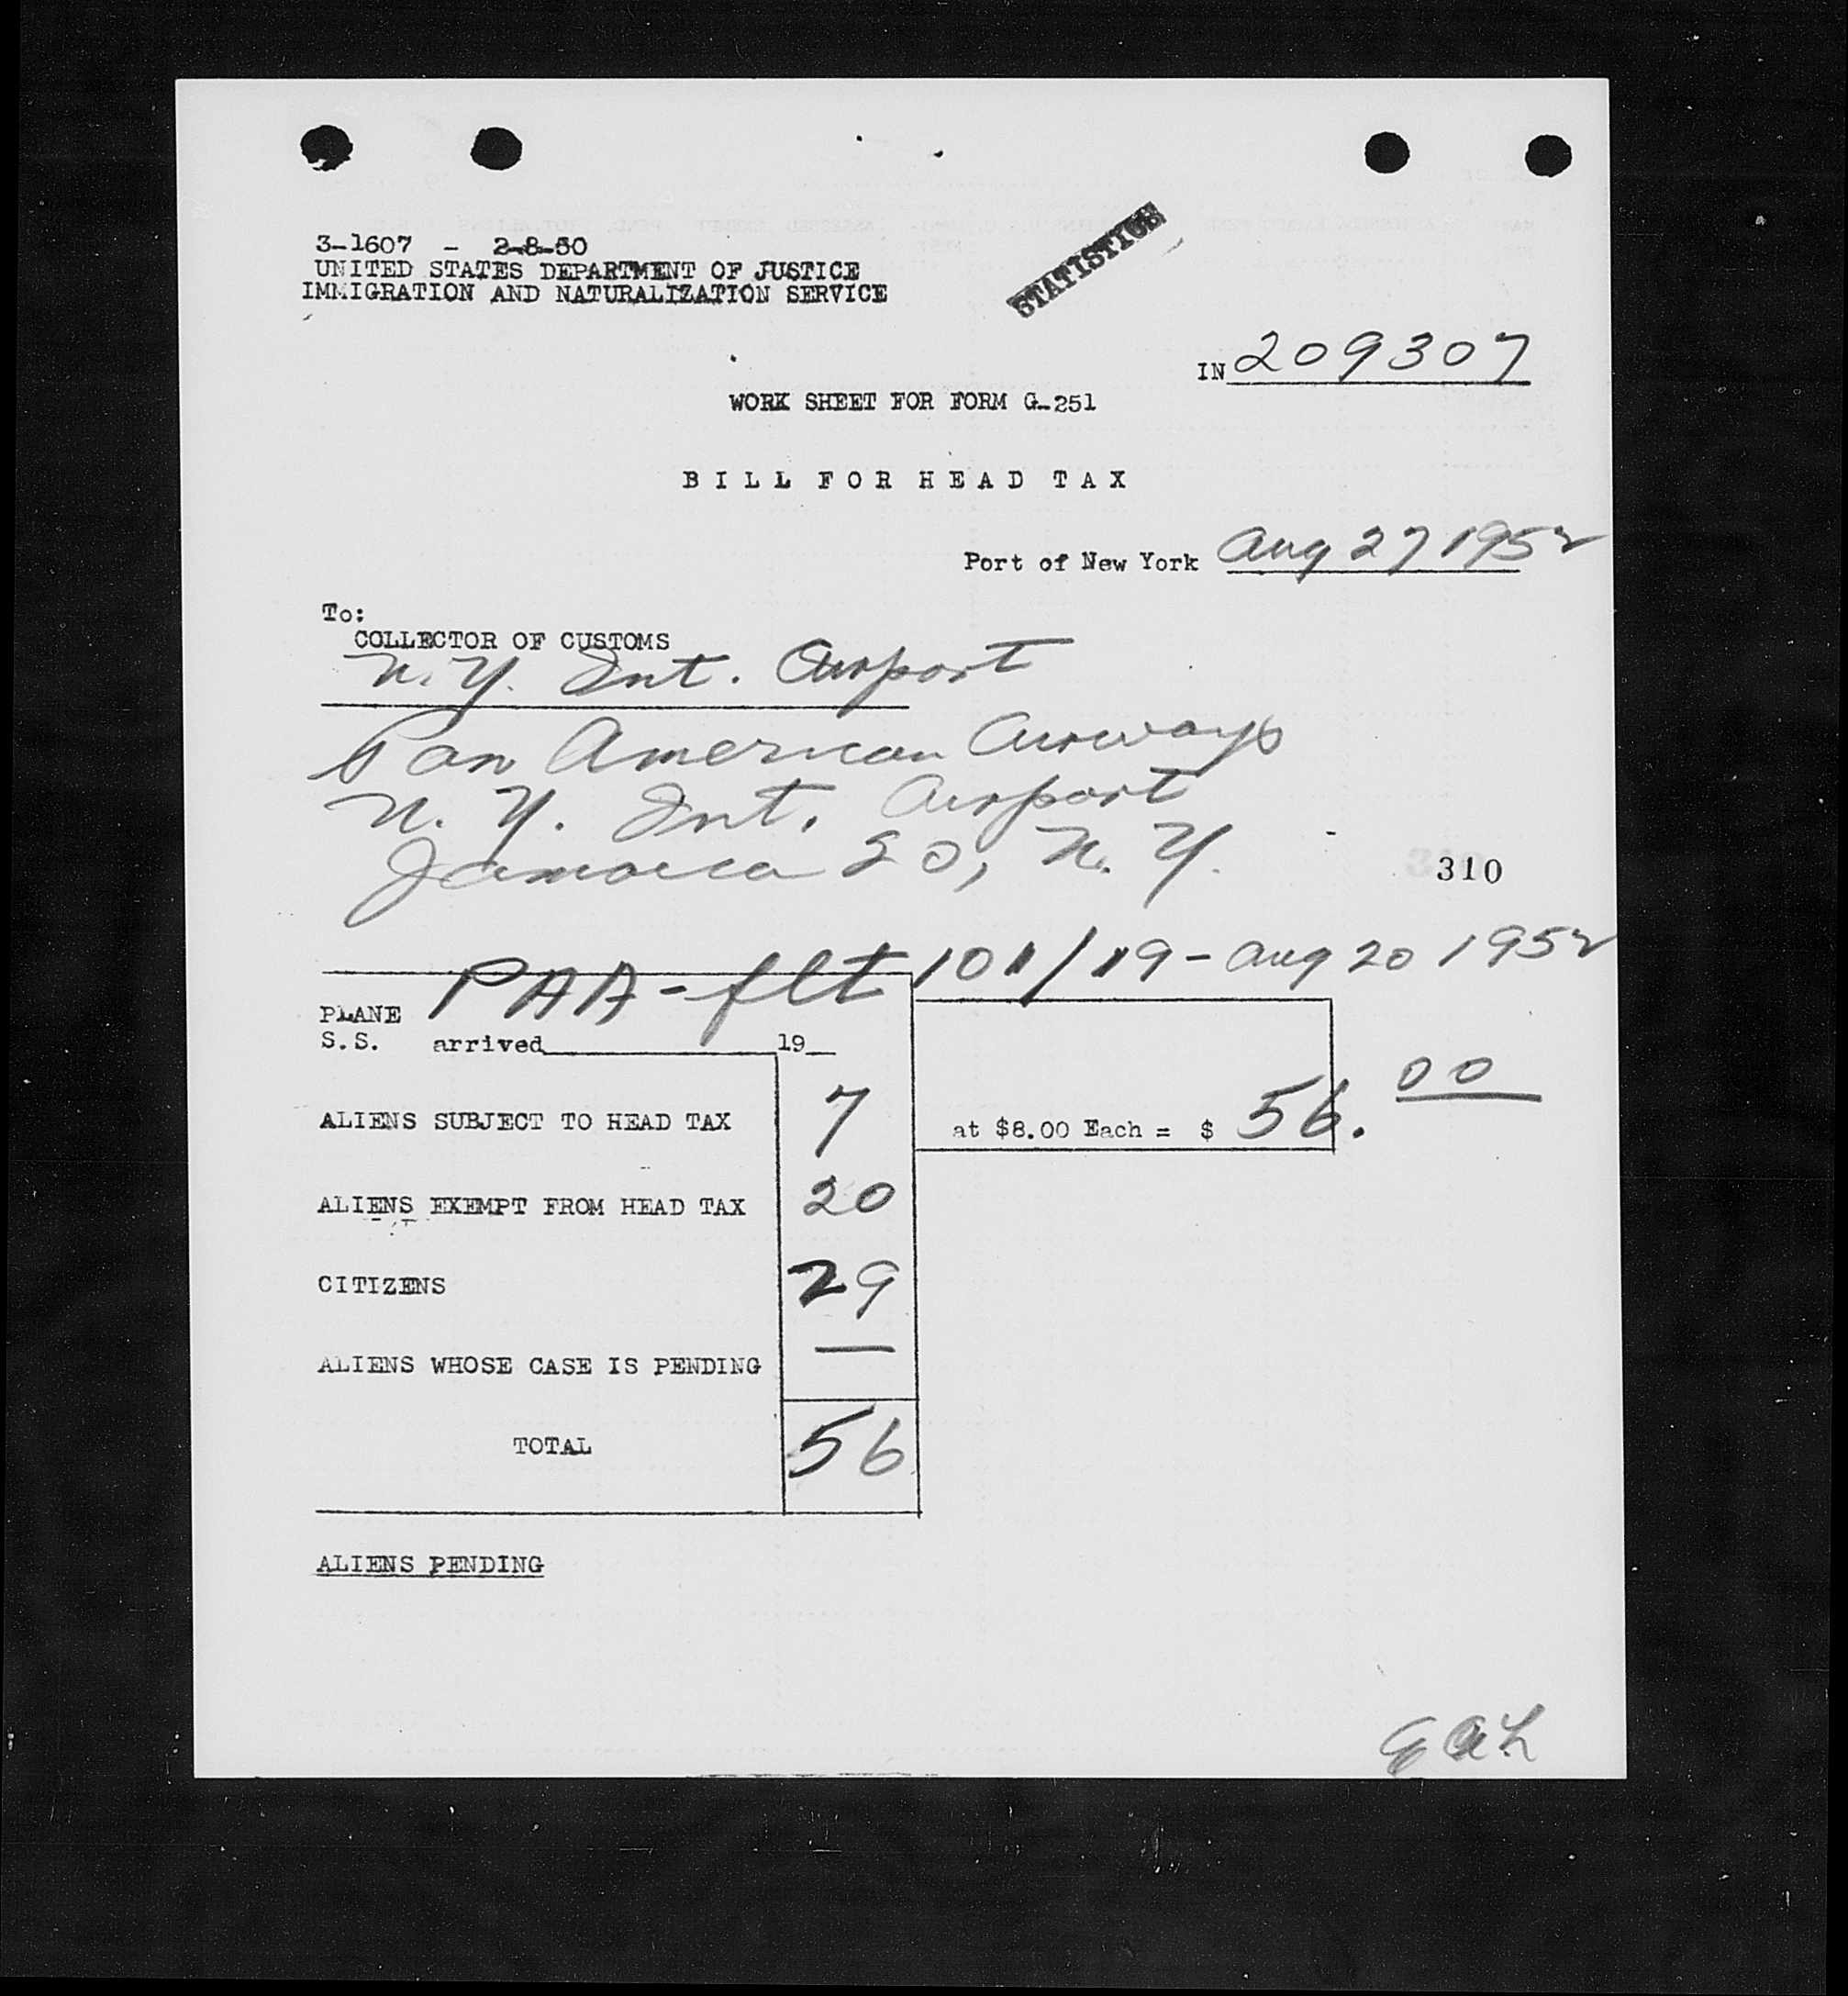 3-1607 - 2-8-50
UNITED STATES DEPARTMENT OF JUSTICE
IMMIGRATION AND NATURALIZATION SERVICE
STATISTICS
IN 209307
WORK SHEET FOR FORM G-251
BILL FOR HEAD TAX
Port of New York Aug 27 1952
To:
COLLECTOR OF CUSTOMS
N.Y. Int. Airport
Pan American Airways
N.Y. Int. Airport
Jamaica 30, N.Y.
310
PAA-flt 101/19 - Aug 20 1952
PLANE
S.S. arrived 19
ALIENS SUBJECT TO HEAD TAX 7 at $8.00 Each = $ 56.00
ALIENS EXEMPT FROM HEAD TAX 20
CITIZENS 29
ALIENS WHOSE CASE IS PENDING —
TOTAL 56
ALIENS PENDING